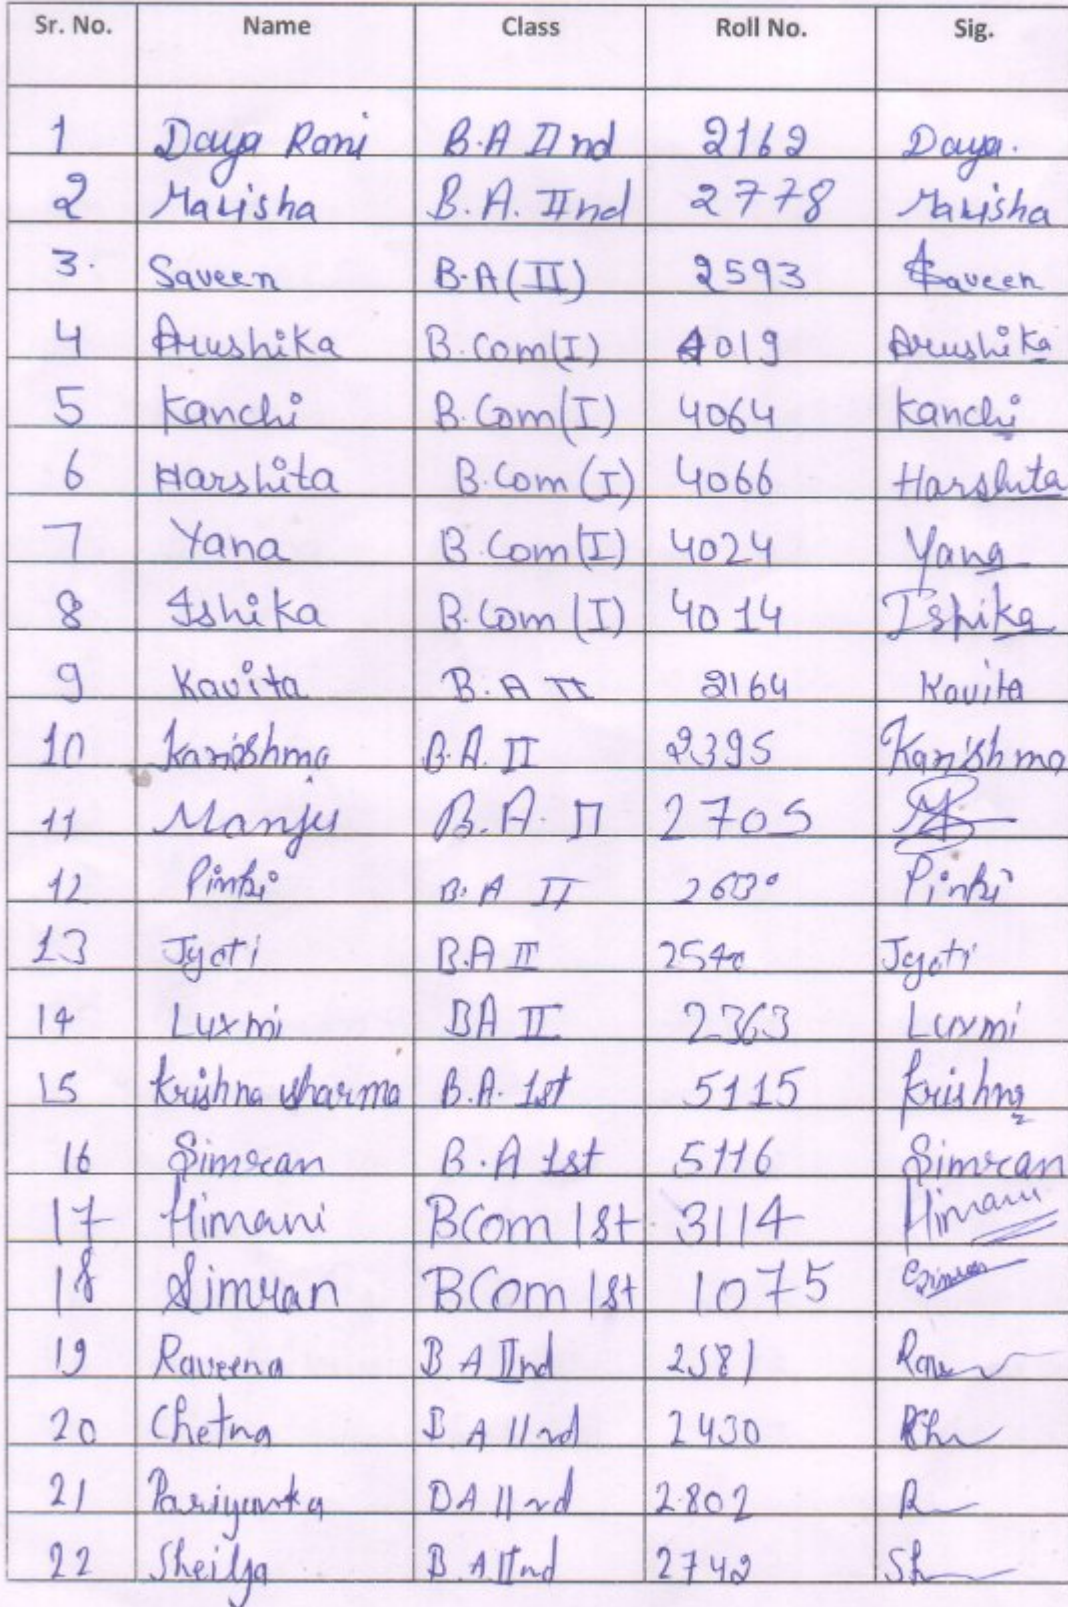 Sr. No. Name Class Roll No. Sig.
1 Daya Rani B.A IInd 2162 Daya.
2 Manisha B.A. IInd 2778 Manisha
3. Saveen B.A(II) 2593 Saveen
4 Arushika B.Com(I) 4019 Arushika
5 Kanchi B.Com(I) 4064 Kanchi
6 Harshita B.Com(I) 4066 Harshita
7 Yana B.Com(I) 4024 Yana
8 Ishika B.Com(I) 4014 Ishika
9 Kavita B.A II 2164 Kavita
10 Karishma B.A. II 2395 Karishma
11 Manju B.A. II 2705
12 Pinki B.A II Pinki
13 Jyoti B.A II 2540 Jyoti
14 Luxmi BA II 2363 Luxmi
15 Krishna Sharma B.A. 1st 5115 Krishna
16 Simran B.A 1st 5116 Simran
17 Himani BCom 1st 3114 Himani
18 Simran BCom 1st 1075 Simran
19 Raveena B A IInd 2581
20 Chetna B A IInd 2430
21 Pariyanka BA IInd 2802
22 Sheilja B.A IInd 2742 Sh